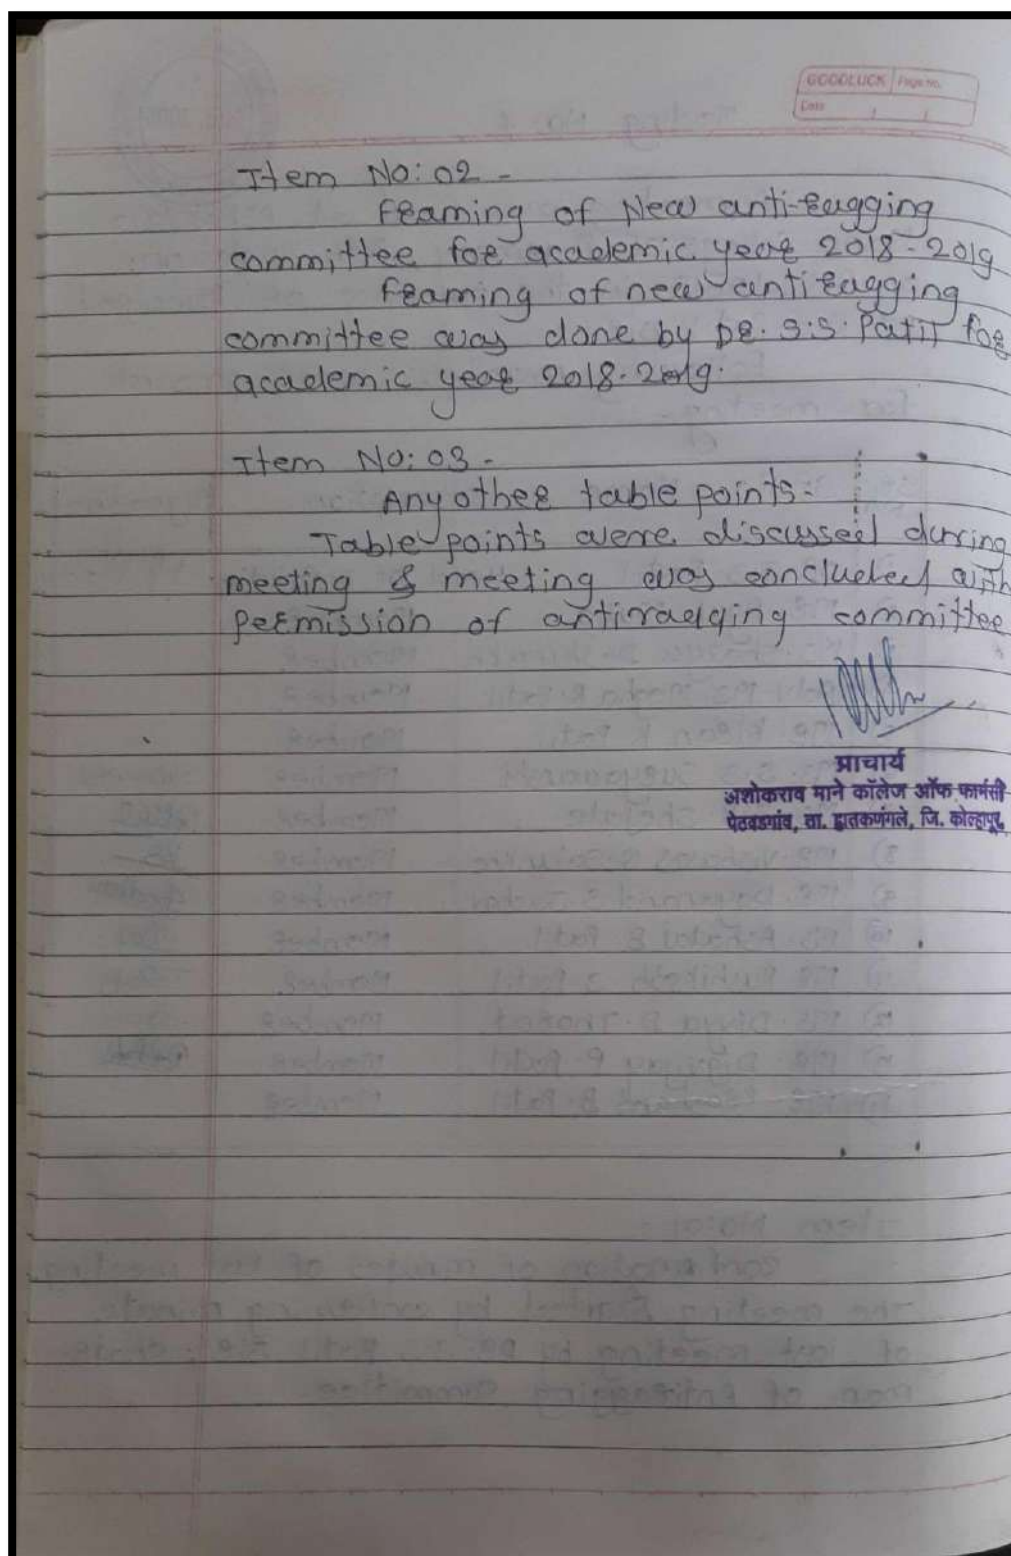 GOODLUCK Page No.
Date / /
Item No: 02 -
Framing of New anti-ragging
committee for academic year 2018-2019
framing of new anti ragging
committee was done by Dr. S.S. Patil for
academic year 2018-2019.
Item No: 03 -
Any other table points -
Table points were discussed during
meeting & meeting was concluded with
permission of antiragging committee
प्राचार्य
अशोकराव माने कॉलेज ऑफ फार्मसी
पेठवडगांव, ता. हातकणंगले, जि. कोल्हापूर